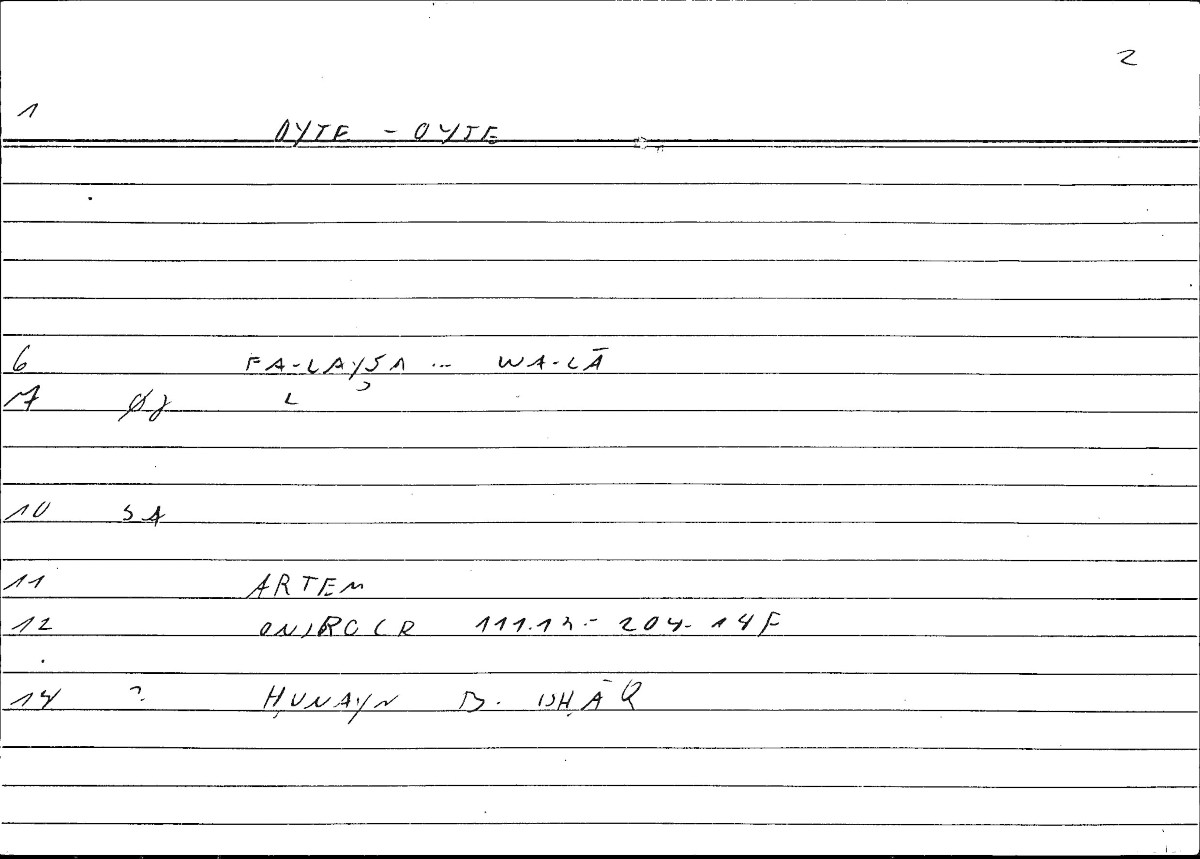 2
1 OYTE - OYTE
6 FA-LAYSA ... WA-LĀ
7 L
10 SA
11 ARTEM
12 ONIROCR 111.12 - 204.14F
14 ? ḤUNAYN B. ISḤĀQ